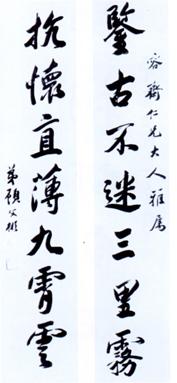 容齋仁兄大人雅屬
鑒古不迷三里霧
抗懷直薄九霄雲
弟顧文彬